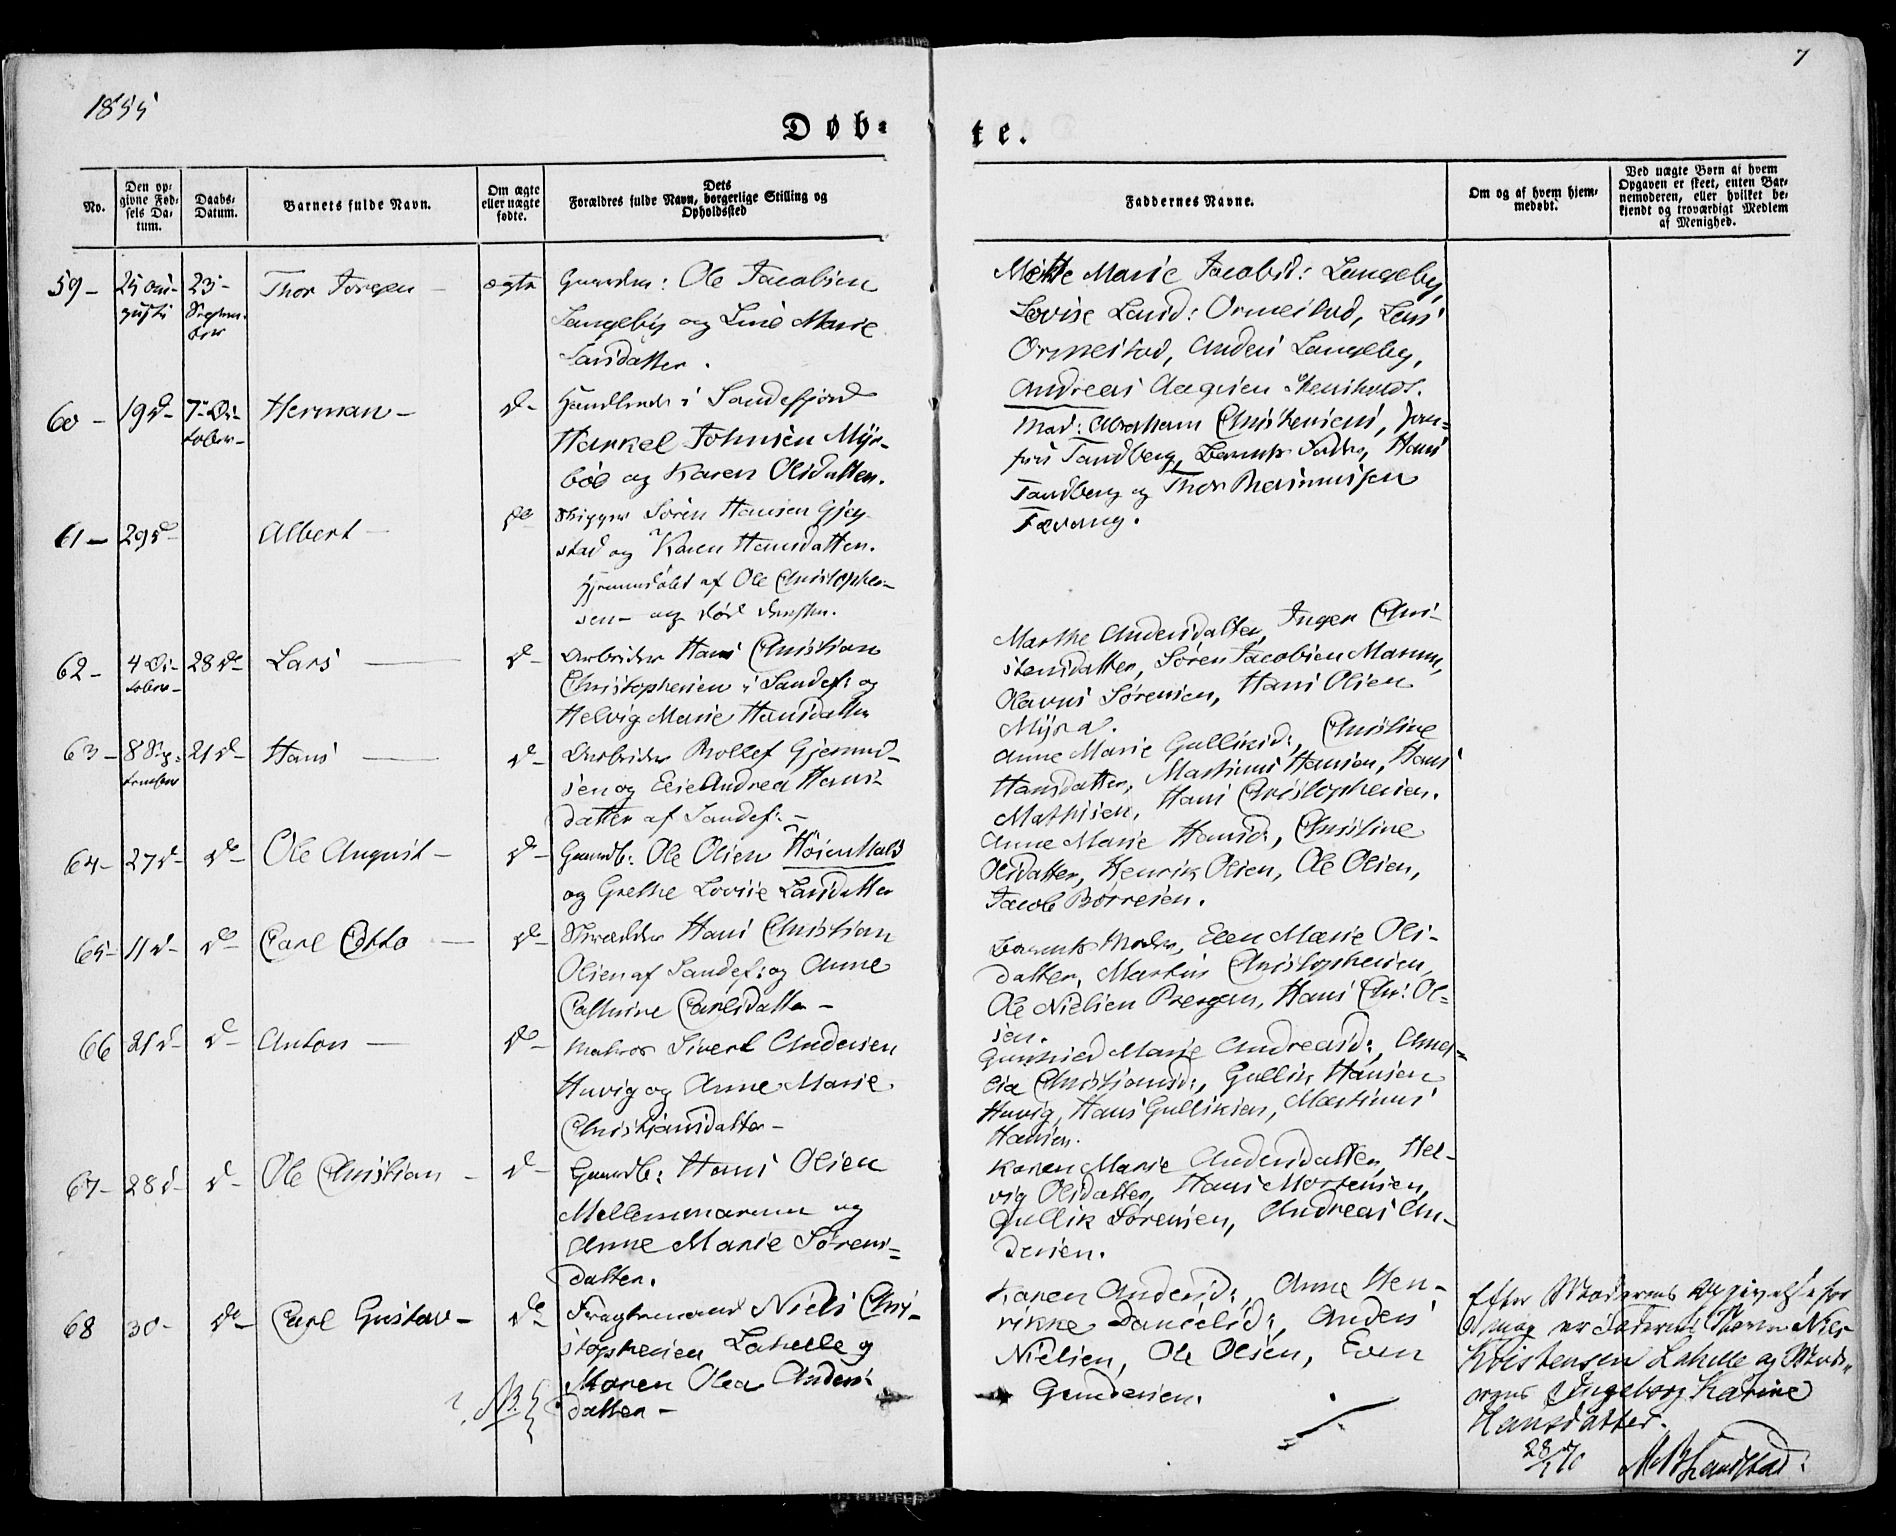 1855
7
Døb-
te.
No.
Den op-
givne Fød-
sels Da-
tum.
Daabs-
Datum.
Barnets fulde Navn.
Om ægte
eller uægte
fødte.
Dets
Forældres fulde Navn, borgerlige Stilling og
Opholdssted
Faddernes Navne.
Om og af hvem hjem-
medøbt.
Ved uægte Børn af hvem
Opgaven er skeet, enten Bar-
nemoderen, eller hvilket be-
kjendt og troværdigt Medlem
af Menighed.
59 -
25 Au-
gusti
23 -
Septem-
ber
Thor Jørgen -
ægte
Gaardm: Ole Jacobsen
Langeby og Line Marie
Larsdatter.
Mette Marie Jacobsd: Langeby,
Lovise Larsd: Ormestad, Lars
Ormestad, Anders Langeby,
Andreas Aagesen
60 -
19 d -
7de Oc-
tober -
Herman -
do -
i Sandefjord
Johnsen Myr-
böe og Karen Olsdatter.
Mad: Abraham Christensens, Jom-
fru Tandberg, Barnets Fader, Hans
Tandberg og Thor Rasmussen
61 -
29 d -
Albert -
do
Skipper Sören Hansen
stad og Karen Hansdatter.
Hjemmedøbt af Ole Christopher-
sen - og død derefter.
62 -
4 Oc-
tober -
28 do
Lars
do -
Arbeider Hans Christian
Christophersen i Sandef: og
Helvig Marie Hansdatter
Marthe Andersdatter, Inger Chri-
stensdatter, Søren Jacobsen Marum,
Olavus Sørensen, Hans Olsen
Myra.
63 -
8 Sep-
tember
21 do -
Hans
do -
Arbeider Rollef Gjermund-
sen og Andrea Hans-
datter af Sandef: -
Anne Marie Gulliksd:, Christine
Hansdatter, Martinus Hansen, Hans
Mathisen, Hans Christophersen.
64 -
27 d -
do -
Ole August -
do -
Gaardb: Ole Olsen
og Grethe Lovise Larsdatter
Anne Marie Hansd:, Christine
Olsdatter, Henrik Olsen, Ole Olsen,
Jacob Børresen.
65 -
11 d -
do -
Carl Otto
do -
Skrædder Hans Christian
Olsen af Sandef: og Anne
Cathrine Carlsdatter -
Barnets Moder, Elen Marie Ols-
datter, Martin Christophersen,
Ole Nielsen Hans Chr: Ol-
sen.
66
21 d -
do -
Anton
do -
Matros Sivert Andersen
Huvig og Anne Marie
Christiansdatter -
Marie Andreasd:, Ama-
lia Christiansd:, Gullik Hansen
Huvig, Hans Gulliksen, Martinus
Hansen.
67 -
28 d -
do -
Ole Christian -
do -
Gaardb: Hans Olsen
Mellemmarum og
Anne Marie Sørens-
datter.
Karen Marie Andersdatter, Hel-
vig Olsdatter, Hans Mortensen,
Gullik Sørensen, Andreas An-
dersen.
68
30 -
do -
Carl Gustav -
do -
Fragtemand Niels Chri-
stophersen Lahelle og
Maren Olea Anders-
datter -
NB.
Karen Andersd:, Anne Hen-
rikke Danielsd:, Anders
Nielsen, Ole Olsen, Even
Gundersen.
Efter Moderens Opgivelse for
mig er Faderens Navn Niels
Kristensen Lahelle og Mod-
erens Ingeborg Karine
Hansdatter.
28/1 70
M B Landstad